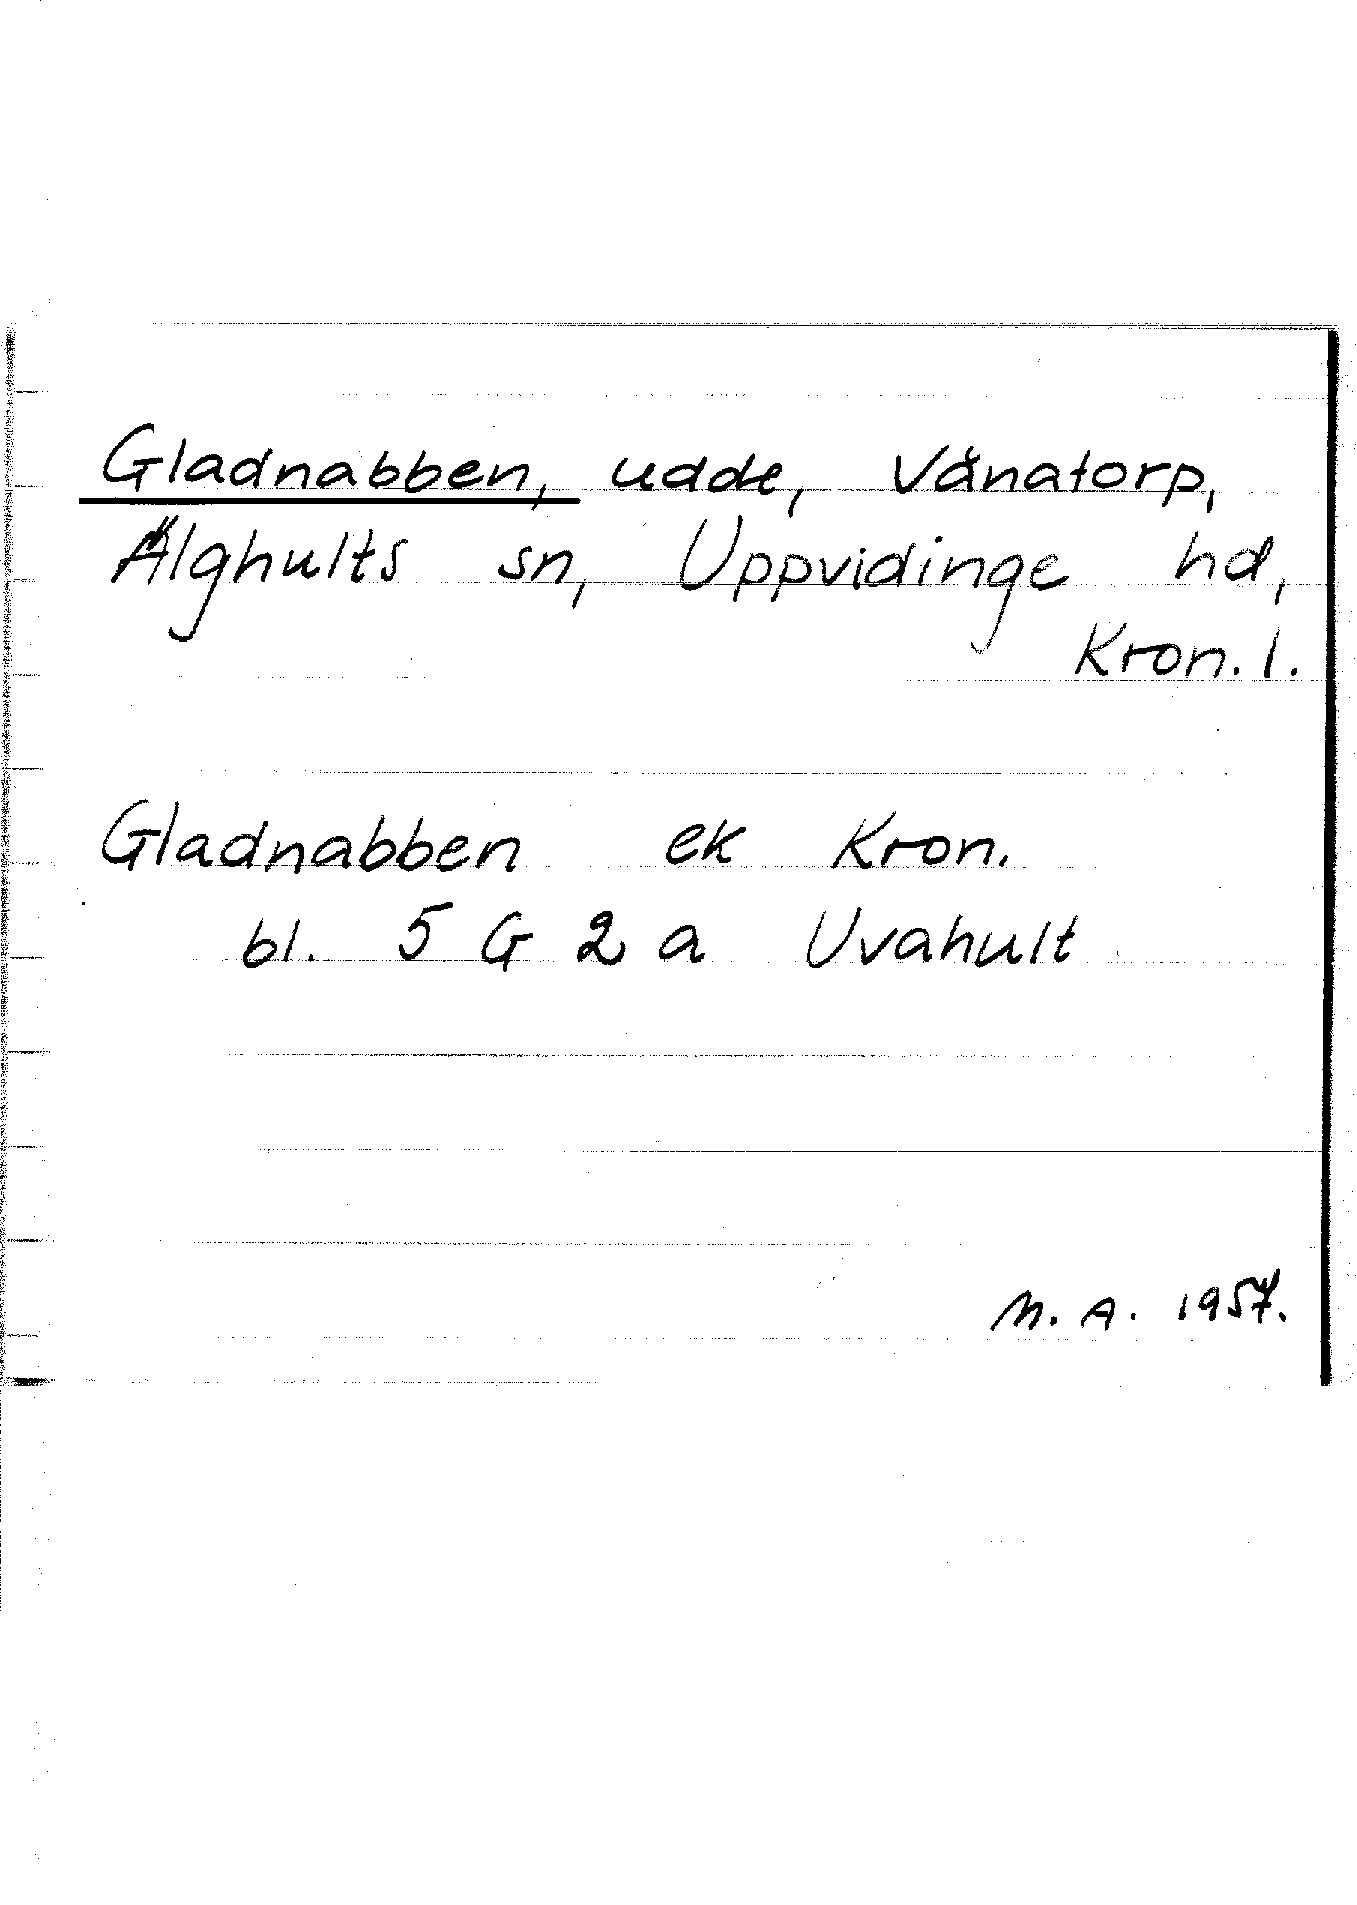 Gladnabben, udde, Vänatorp,
Älghults sn, Uppvidinge hd,
Kron. l.
Gladnabben ek Kron.
bl. 5 G 2 a Uvahult
M. A. 1957.